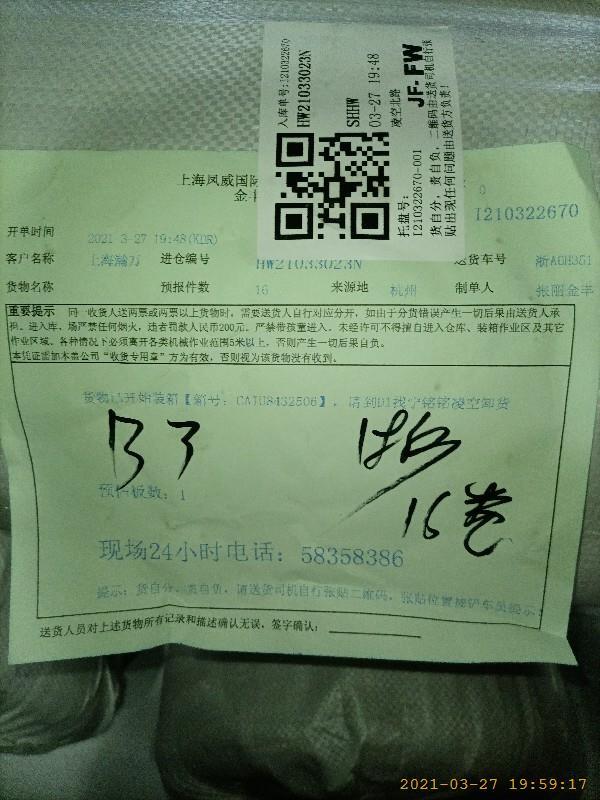 入库单号:I210322670
HW21033023N
SHHW
03-27 19:48
凌空北路
JF-FW
托盘号:
I210322670-001
货自分，责自负，二维码由送货司机自行张
贴出现任何问题由送货方负责！
上海凤威国际
I210322670
开单时间 2021 3-27 19:48(KDR)
客户名称 上海瀚万 进仓编号 HW21033023N 送货车号 浙A0H351
货物名称 预报件数 16 来源地 杭州 制单人 张丽金丰
重要提示 同一收货人送两票或两票以上货物时，需要送货人自行对应分开，如由于分货错误产生一切后果由送货人承
担。进入库、场严禁任何烟火，违者罚款人民币200元。严禁带孩童进入。未经许可不得擅自进入仓库、装箱作业区及其它
作业区域。各种情况下必须离开各类机械作业范围5米以上，否则产生一切后果自负。
本凭证需加木盖公司“收货专用章”方为有效，否则视为该货物没有收到。
货物已开始装箱【箱号：CAIU8432506】，请到D1找宁铭铭凌空卸货
预估板数：1
16卷
现场24小时电话：58358386
提示：货自分，责自负，请送货司机自行张贴二维码，张贴位置按铲车员提示。
送货人员对上述货物所有记录和描述确认无误，签字确认：
2021-03-27 19:59:17